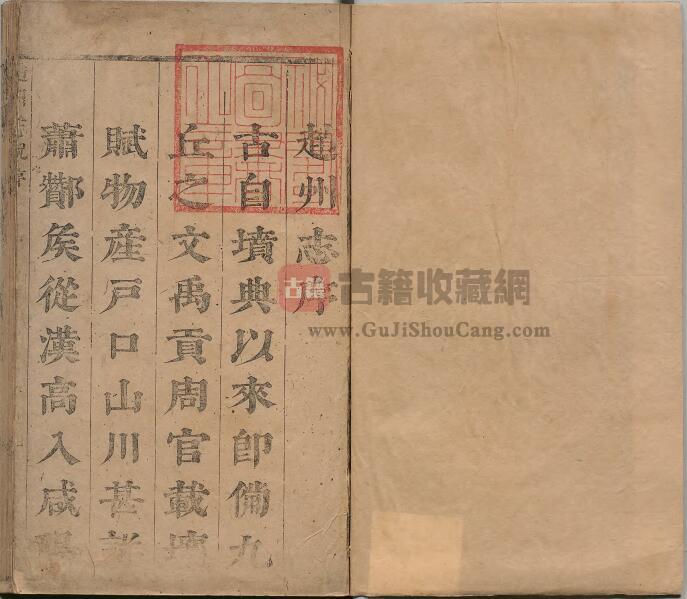 趙州志序
古自墳典以來即備九
丘之文禹貢周官載壤
賦物産戸口山川甚詳
蕭酇矦從漢高入咸陽
古籍
古籍收藏網
www.GuJiShouCang.com